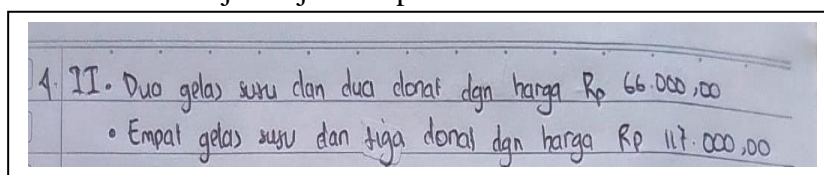 4. II. Dua gelas susu dan dua donat dgn harga Rp 66.000,00
• Empat gelas susu dan tiga donat dgn harga Rp 117.000,00